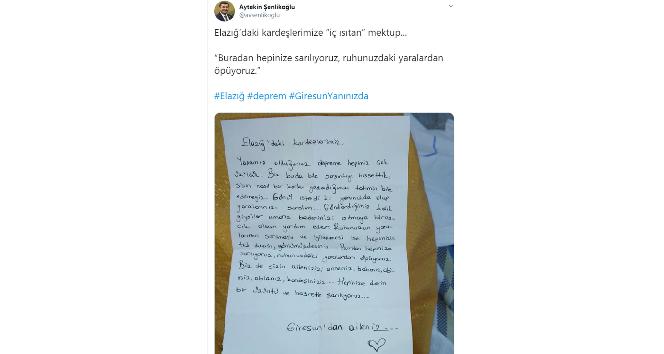 Aytekin Şenlikoğlu
@avsenlikoglu
Elazığ'daki kardeşlerimize "iç ısıtan" mektup...
"Buradan hepinize sarılıyoruz, ruhunuzdaki yaralardan
öpüyoruz."
#Elazığ #deprem #GiresunYanınızda
Elazığ'daki kardeşlerimiz..
Yaşamış olduğunuz depreme hepimiz çok
Biz burda bile sarsıntıyı hissettik,
sizin nasıl bir korku yaşadığınızı tahmin bile
Gönül isterdi ki yanınızda olup
yaralarınızı saralım... Gönderdiğimiz
giysiler umarız bedeninizi ısıtmaya biraz
cık olsun yardım eder. Ruhunuzun yara
larının sarılması ve iyileşmesi ise hepimizin
tek duası, Burdan hepinize
sarılıyoruz, ruhunuzdaki yaralardan öpüyoruz.
Biz de sizin aileniziz, anneniz, babanız, abi
niz, ablanız, kardeşiniziz... Hepinize derin
bir ve hasretle sarılıyoruz...
Giresun'dan aileniz...